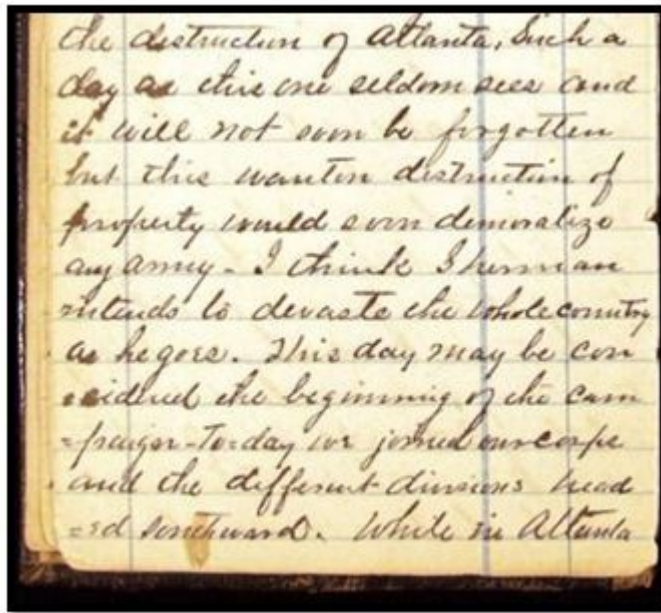 the destruction of Atlanta, Such a
day as this one seldom sees and
it will not soon be forgotten
but this wanton destruction of
property would soon demoralize
any army - I think Sherman
intends to devaste the whole country
as he goes. This day may be con
=sidered the beginning of the cam
=paign - To=day we joined our corps
and the different divisions head
=ed southward. While in Atlanta